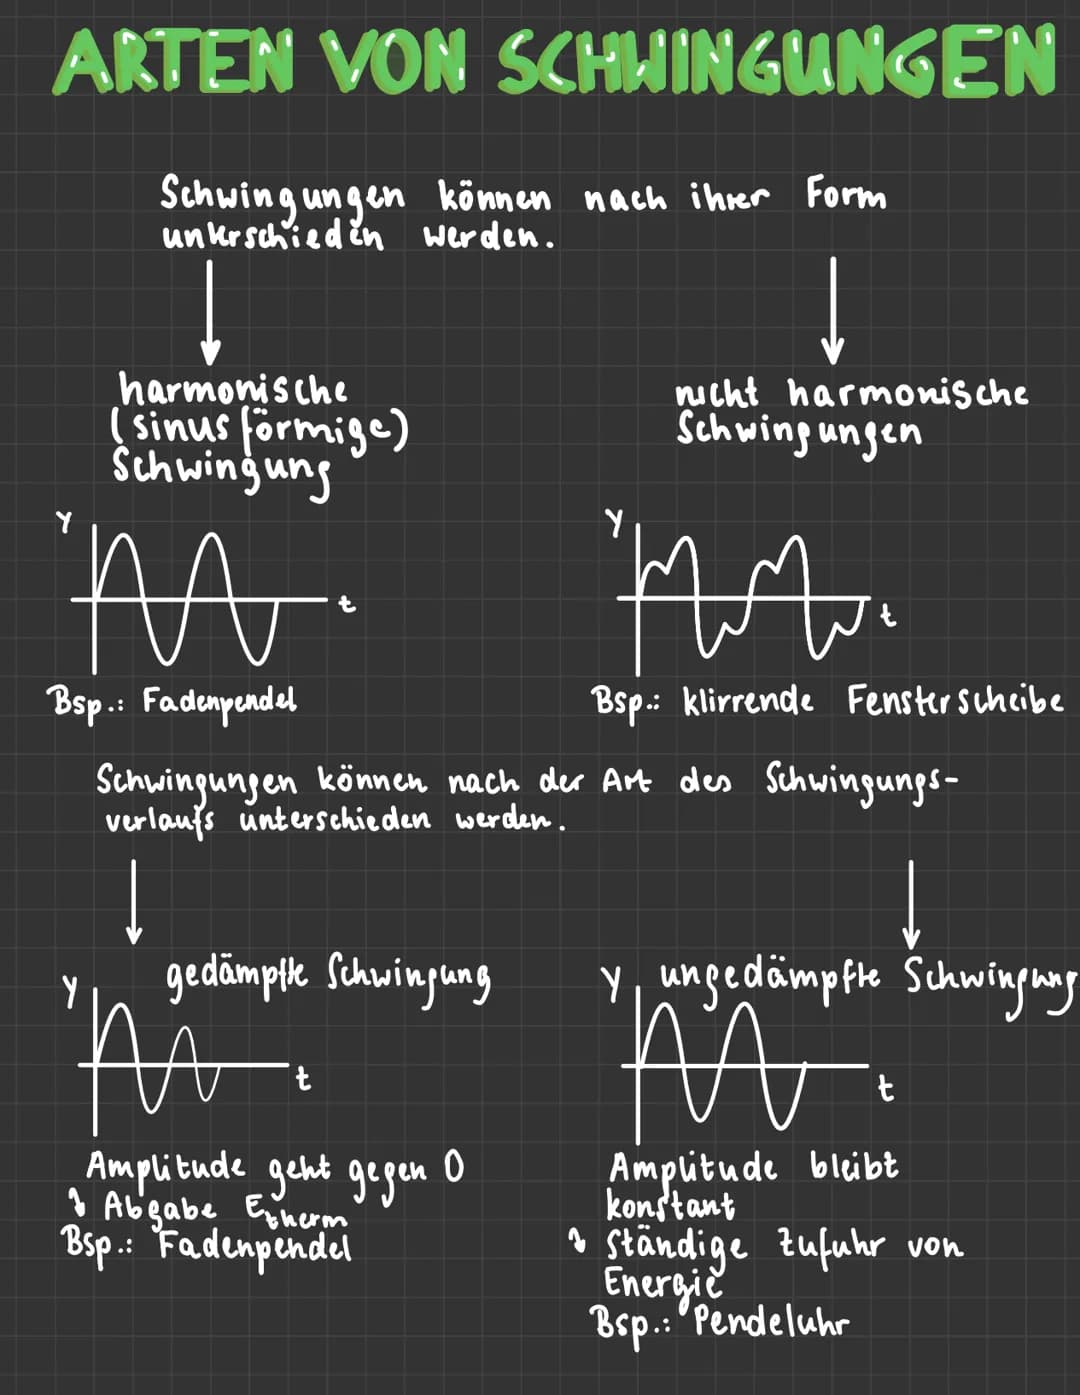 ARTEN VON SCHWINGUNGEN
Schwingungen können nach ihrer Form
unterschieden werden.
harmonische
(sinusförmige)
Schwingung
nicht harmonische
Schwingungen
y
t
y
t
Bsp.: Fadenpendel
Bsp.: klirrende Fensterscheibe
Schwingungen können nach der Art des Schwingungs-
verlaufs unterschieden werden.
gedämpfte Schwingung
y
t
ungedämpfte Schwingung
y
t
Amplitude geht gegen 0
↳ Abgabe Etherm
Bsp.: Fadenpendel
Amplitude bleibt
konstant
↳ Ständige Zufuhr von
Energie
Bsp.: Pendeluhr